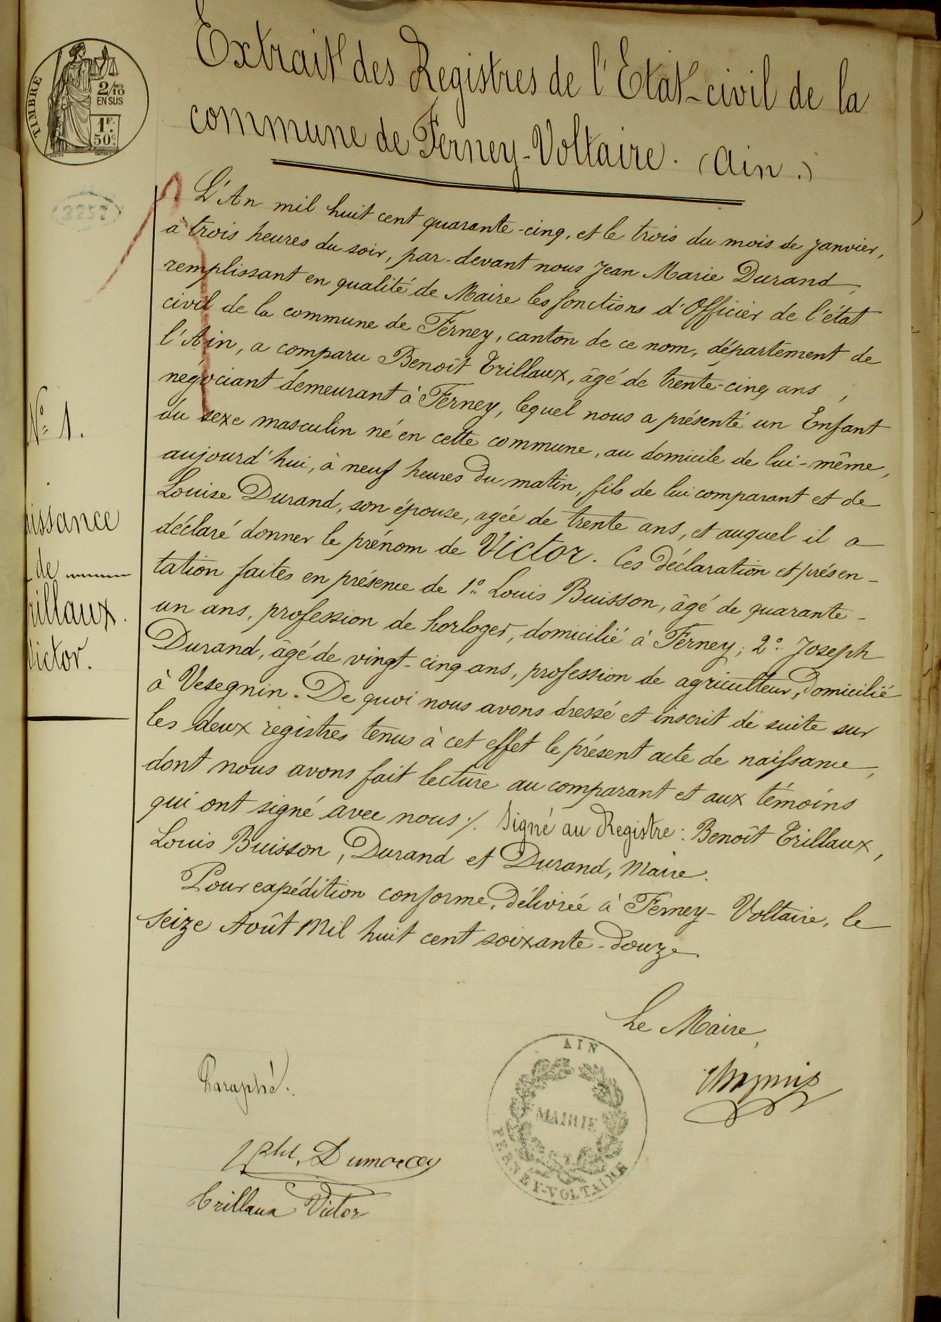 Extrait des Registres de l'Etat-civil de la
commune de Ferney-Voltaire. (Ain.)
TIMBRE
2/10
EN SUS
1F.
50c
L'An mil huit cent quarante-cinq, et le trois du mois de janvier,
à trois heures du soir, par-devant nous Jean Marie Durand,
remplissant en qualité de Maire les fonctions d'Officier de l'état
civil de la commune de Ferney, canton de ce nom, département de
l'Ain, a comparu Benoît Trillaux, âgé de trente-cinq ans,
negociant demeurant à Ferney, lequel nous a présenté un Enfant
du sexe masculin né en cette commune, au domicile de lui-même,
aujourd'hui, à neuf heures du matin, fils de lui comparant et de
Louise Durand, son épouse, agée de trente ans, et auquel il a
déclaré donner le prénom de Victor. Ces déclaration et présen-
tation faites en présence de 1o. Louis Buisson, âgé de quarante-
un ans, profession de horloger, domicilié à Ferney; 2o. Joseph
Durand, agé de vingt-cinq ans, profession de agriculteur, domicilié
à Vesegnin. De quoi nous avons dressé et inscrit de suite sur
les deux registres tenus à cet effet le présent acte de naissance,
dont nous avons fait lecture au comparant et aux témoins
qui ont signé avec nous ./. Signé au Registre: Benoît Trillaux,
Louis Buisson, Durand et Durand, Maire.
Pour expédition conforme, délivrée à Ferney-Voltaire, le
seize Août Mil huit cent soixante-douze
No. 1.
aissance
de
rillaux.
Victor.
Le Maire,
AIN
MAIRIE
FERNEY-VOLTAIRE
Paraphé.
Trillaux Victor